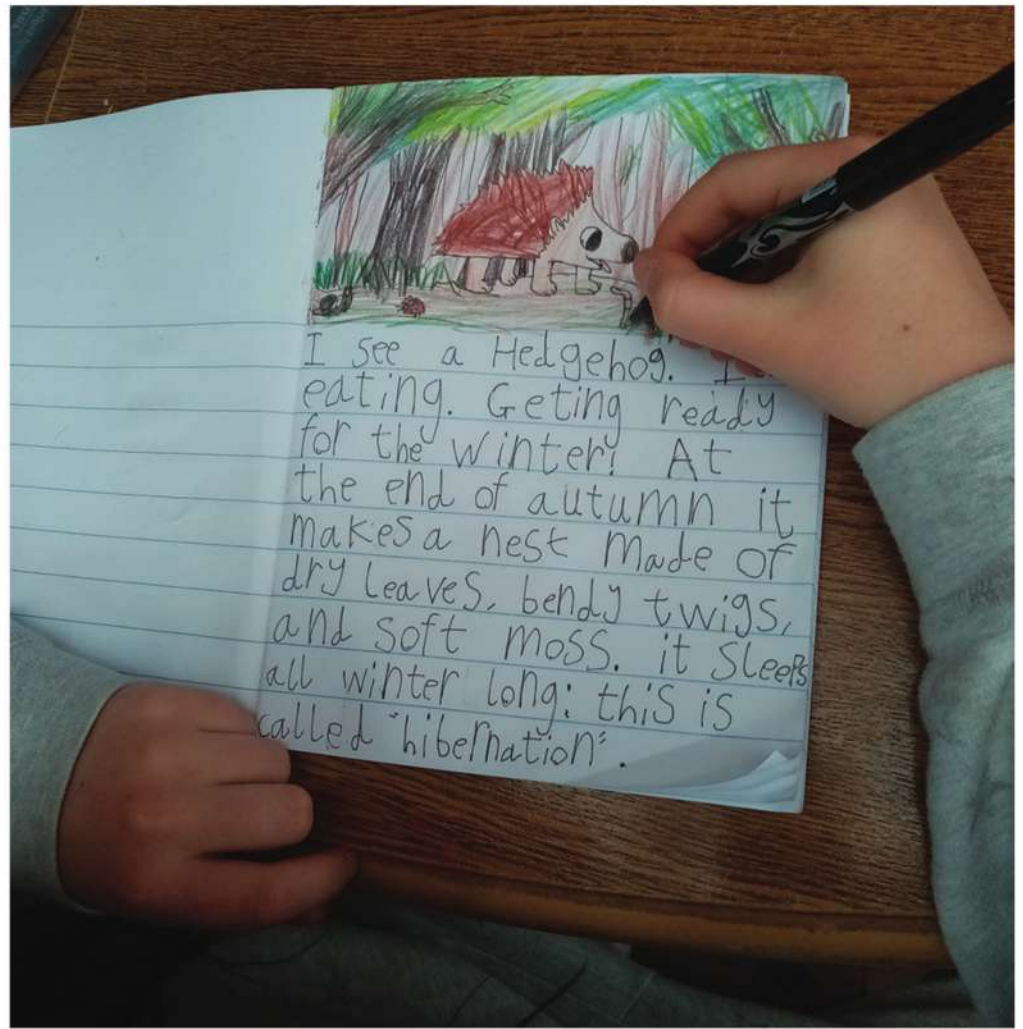 I see a Hedgehog.
eating. Geting ready
for the winter! At
the end of autumn it
makes a nest made of
dry leaves, bendy twigs,
and soft moss. it sleeps
all winter long: this is
called "hibernation".